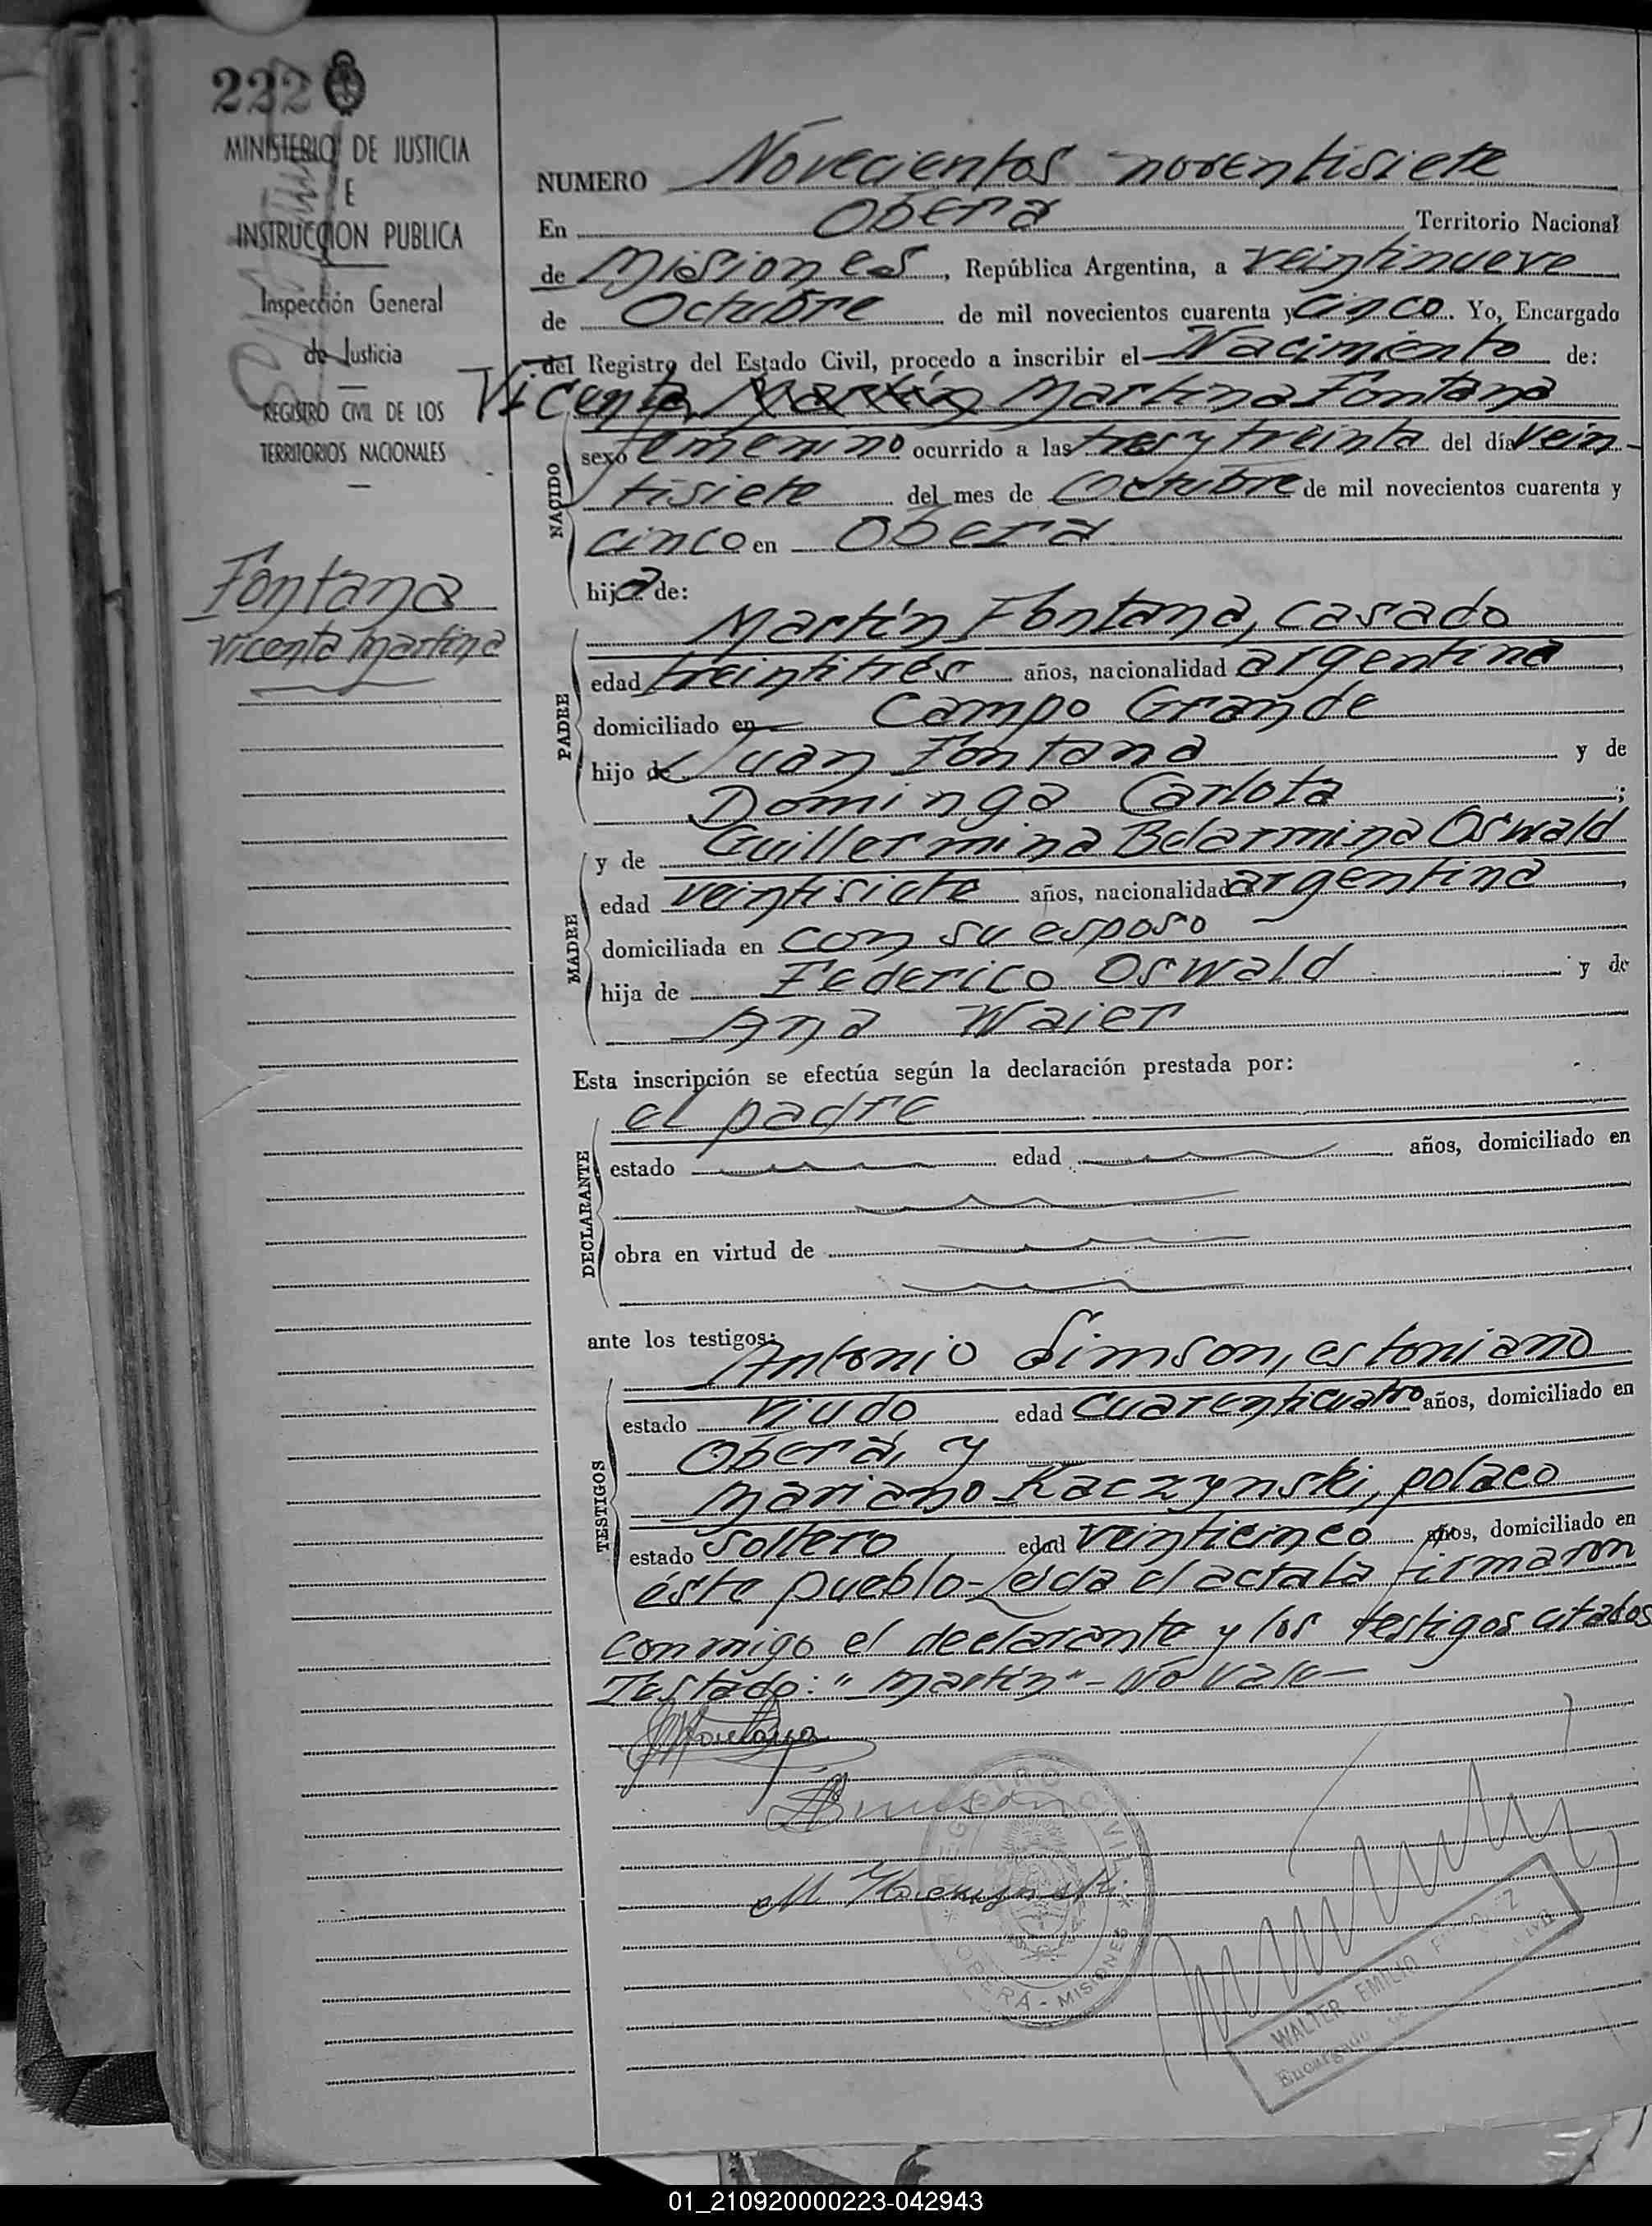 222
MINISTERIO DE JUSTICIA
E
INSTRUCCION PUBLICA
Inspección General
de Justicia
REGISTRO CIVIL DE LOS
TERRITORIOS NACIONALES
Fontana
Vicenta Martina
NUMERO Novecientos noventisiete
En Oberá Territorio Nacional
de Misiones, República Argentina, a veintinueve
de Octubre de mil novecientos cuarenta y cinco. Yo, Encargado
del Registro del Estado Civil, procedo a inscribir el Nacimiento de:
Vicenta Martín Martina Fontana
NACIDO
sexo femenino ocurrido a las tres y treinta del día vein-
tisiete del mes de Octubre de mil novecientos cuarenta y
cinco en Oberá
hija de:
Martín Fontana, casado
PADRE
edad treintitrés años, nacionalidad argentina,
domiciliado en Campo Grande
hijo de Juan Fontana y de
Dominga Carlota;
y de Guillermina Belarmina Oswald
MADRE
edad veintisiete años, nacionalidad argentina,
domiciliada en con su esposo
hija de Federico Oswald y de
Ana Waier
Esta inscripción se efectúa según la declaración prestada por:
el padre
DECLARANTE
estado edad años, domiciliado en
obra en virtud de
ante los testigos:
Antonio Simson, estoniano
TESTIGOS
estado viudo edad cuarenticuatro años, domiciliado en
Oberá, y
Mariano Kaczynski, polaco
estado soltero edad veinticinco años, domiciliado en
éste pueblo-Leida el acta la firmaron
conmigo el declarante y los testigos citados
Testado: "Martín" - No vale-
REGISTRO CIVIL
OBERÁ - MISIONES
WALTER EMILIO
Encargado
01_210920000223-042943